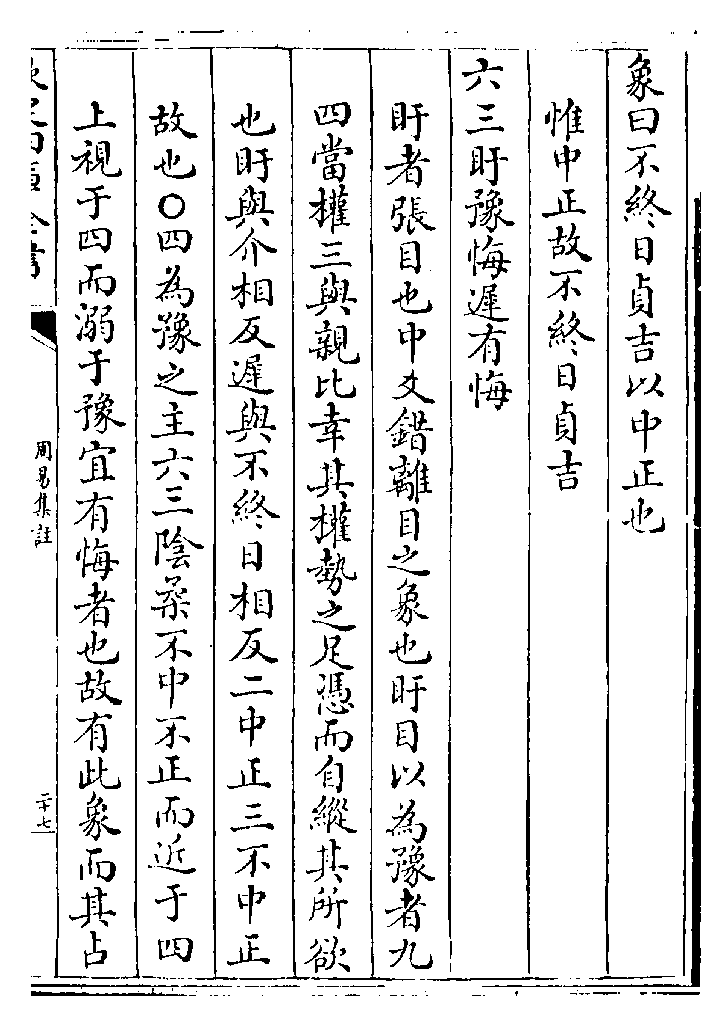 象曰不終日貞吉以中正也
惟中正故不終日貞吉
六三盱豫悔遲有悔
盱者張目也中爻錯離目之象也盱目以為豫者九
四當權三與親比幸其權勢之足憑而自縱其所欲
也盱與介相反遲與不終日相反二中正三不中正
故也○四為豫之主六三陰柔不中不正而近于四
上視于四而溺于豫宜有悔者也故有此象而其占
周易集註
二十七